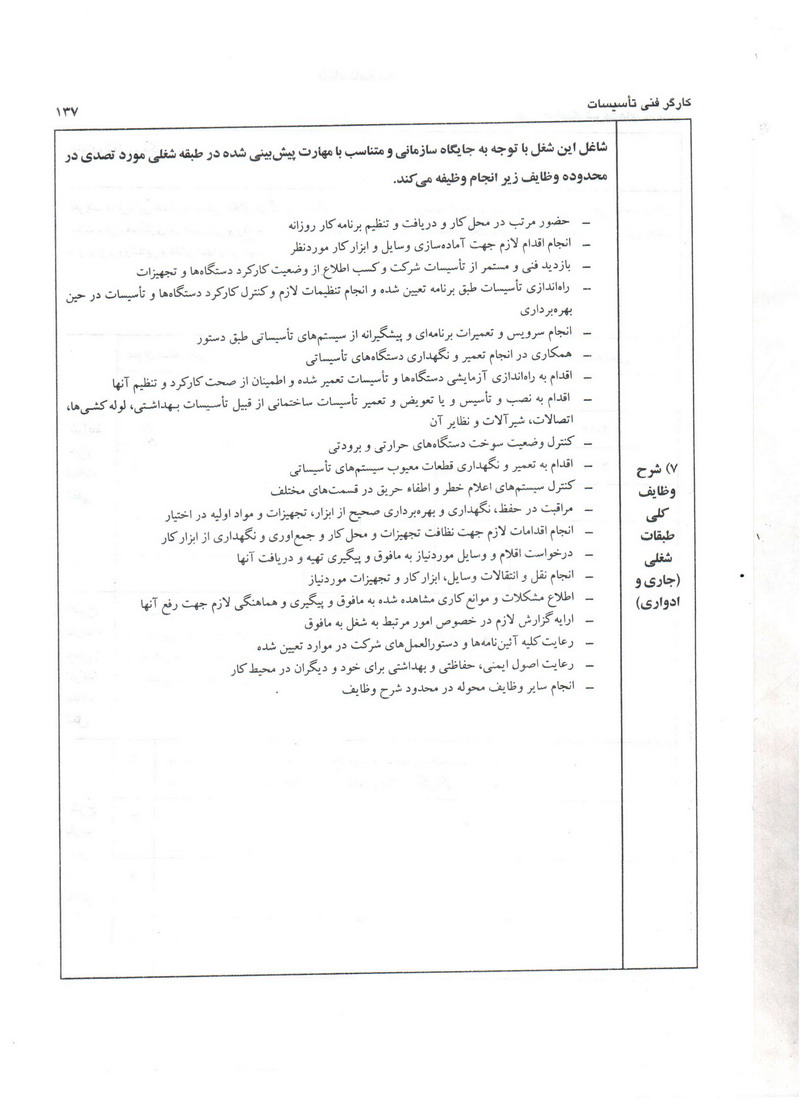 کارگر فنی تأسیسات
۱۳۷
شاغل این شغل با توجه به جایگاه سازمانی و متناسب با مهارت پیش‌بینی شده در طبقه شغلی مورد تصدی در
محدوده وظایف زیر انجام وظیفه می‌کند.
– حضور مرتب در محل کار و دریافت و تنظیم برنامه کار روزانه
– انجام اقدام لازم جهت آماده‌سازی وسایل و ابزار کار موردنظر
– بازدید فنی و مستمر از تأسیسات شرکت و کسب اطلاع از وضعیت کارکرد دستگاه‌ها و تجهیزات
– راه‌اندازی تأسیسات طبق برنامه تعیین شده و انجام تنظیمات لازم و کنترل کارکرد دستگاه‌ها و تأسیسات در حین
بهره‌برداری
– انجام سرویس و تعمیرات برنامه‌ای و پیشگیرانه از سیستم‌های تأسیساتی طبق دستور
– همکاری در انجام تعمیر و نگهداری دستگاه‌های تأسیساتی
– اقدام به راه‌اندازی آزمایشی دستگاه‌ها و تأسیسات تعمیر شده و اطمینان از صحت کارکرد و تنظیم آنها
– اقدام به نصب و تأسیس و یا تعویض و تعمیر تأسیسات ساختمانی از قبیل تأسیسات بهداشتی، لوله‌کشی‌ها،
اتصالات، شیرآلات و نظایر آن
– کنترل وضعیت سوخت دستگاه‌های حرارتی و برودتی
– اقدام به تعمیر و نگهداری قطعات معیوب سیستم‌های تأسیساتی
– کنترل سیستم‌های اعلام خطر و اطفاء حریق در قسمت‌های مختلف
– مراقبت در حفظ، نگهداری و بهره‌برداری صحیح از ابزار، تجهیزات و مواد اولیه در اختیار
– انجام اقدامات لازم جهت نظافت تجهیزات و محل کار و جمع‌اوری و نگهداری از ابزار کار
– درخواست اقلام و وسایل موردنیاز به مافوق و پیگیری تهیه و دریافت آنها
– انجام نقل و انتقالات وسایل، ابزار کار و تجهیزات موردنیاز
– اطلاع مشکلات و موانع کاری مشاهده شده به مافوق و پیگیری و هماهنگی لازم جهت رفع آنها
– ارایه گزارش لازم در خصوص امور مرتبط به شغل به مافوق
– رعایت کلیه آئین‌نامه‌ها و دستورالعمل‌های شرکت در موارد تعیین شده
– رعایت اصول ایمنی، حفاظتی و بهداشتی برای خود و دیگران در محیط کار
– انجام سایر وظایف محوله در محدود شرح وظایف
۷) شرح
وظایف
کلی
طبقات
شغلی
(جاری و
ادواری)